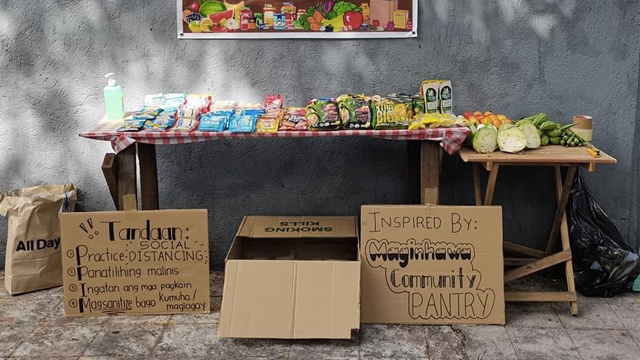 All Day
Tandaan:
SOCIAL
① Practice DISTANCING
② Panatilihing malinis
③ Ingatan ang mga pagkain
④ Magsanitize bago kumuha/
maglagay
SMOKING
KILLS
INSPIRED BY:
Maginhawa
Community
PANTRY